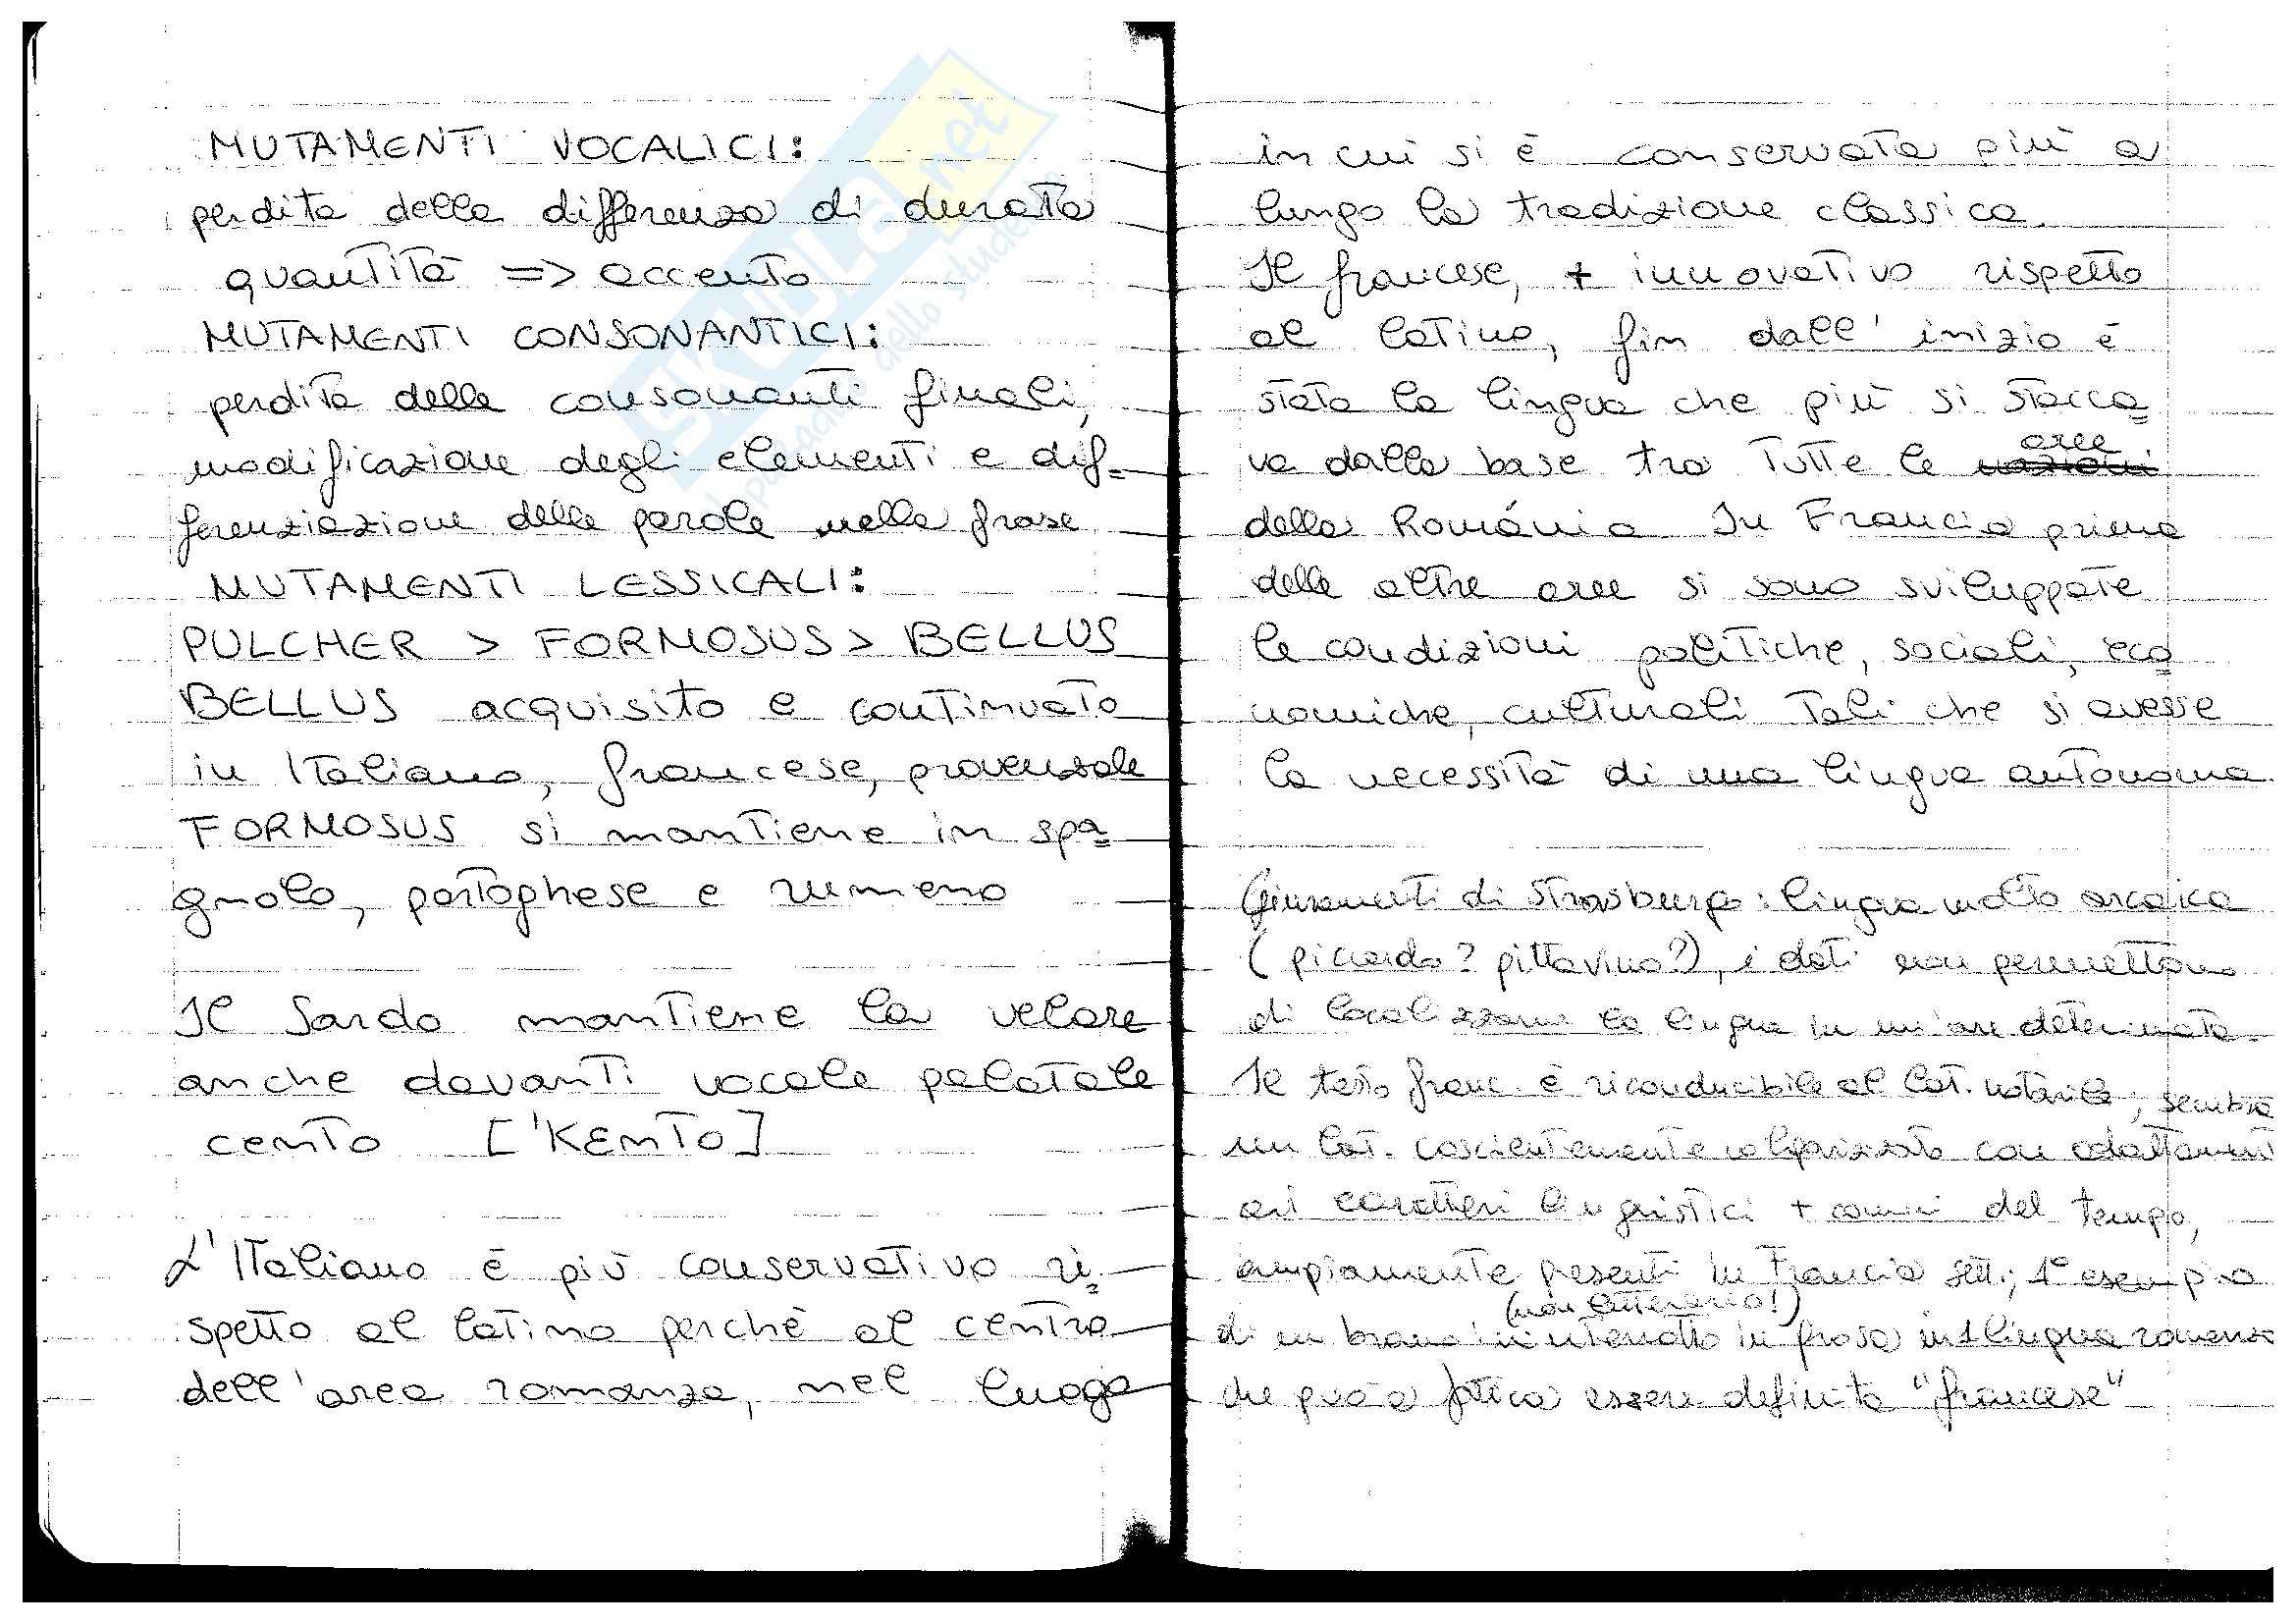 MUTAMENTI VOCALICI:
perdita della differenza di durata
quantità => accento
MUTAMENTI CONSONANTICI:
perdita delle consonanti finali,
modificazione degli elementi e dif=
ferenziazione delle parole nella frase
MUTAMENTI LESSICALI:
PULCHER > FORMOSUS > BELLUS
BELLUS acquisito e continuato
in Italiano, francese, provenzale
FORMOSUS si mantiene in spa=
gnolo, portoghese e rumeno
Il Sardo mantiene la velare
anche davanti vocale palatale
cento ['KEnTO]
L'Italiano è più conservativo ri=
spetto al latino perchè al centro
dell'area romanza, nel luogo
in cui si è conservata più a
lungo la tradizione classica.
Il francese, + innovativo rispetto
al latino, fin dall'inizio è
stata la lingua che più si stacca=
va dalla base tra tutte le aree
della Románia. In Francia prima
delle altre aree si sono sviluppate
le condizioni politiche, sociali, eco=
nomiche, culturali tali che si avesse
la necessità di una lingua autonoma.
Giuramenti di Strasburgo: lingua molto arcaica
(piccardo? pittavino?), i dati non permettono
di localizzare la lingua in un'area determinata.
Il testo franc. è riconducibile al lat. notarile, sembra
un lat. coscientemente volgarizzato con adattamenti
ai caratteri linguistici + comuni del tempo,
ampiamente presenti in Francia sett.; 1° esempio
(non letterario!)
di un brano in prosa in 1 lingua romanza
che può a fatica essere definita "francese"
SKUOLA.net